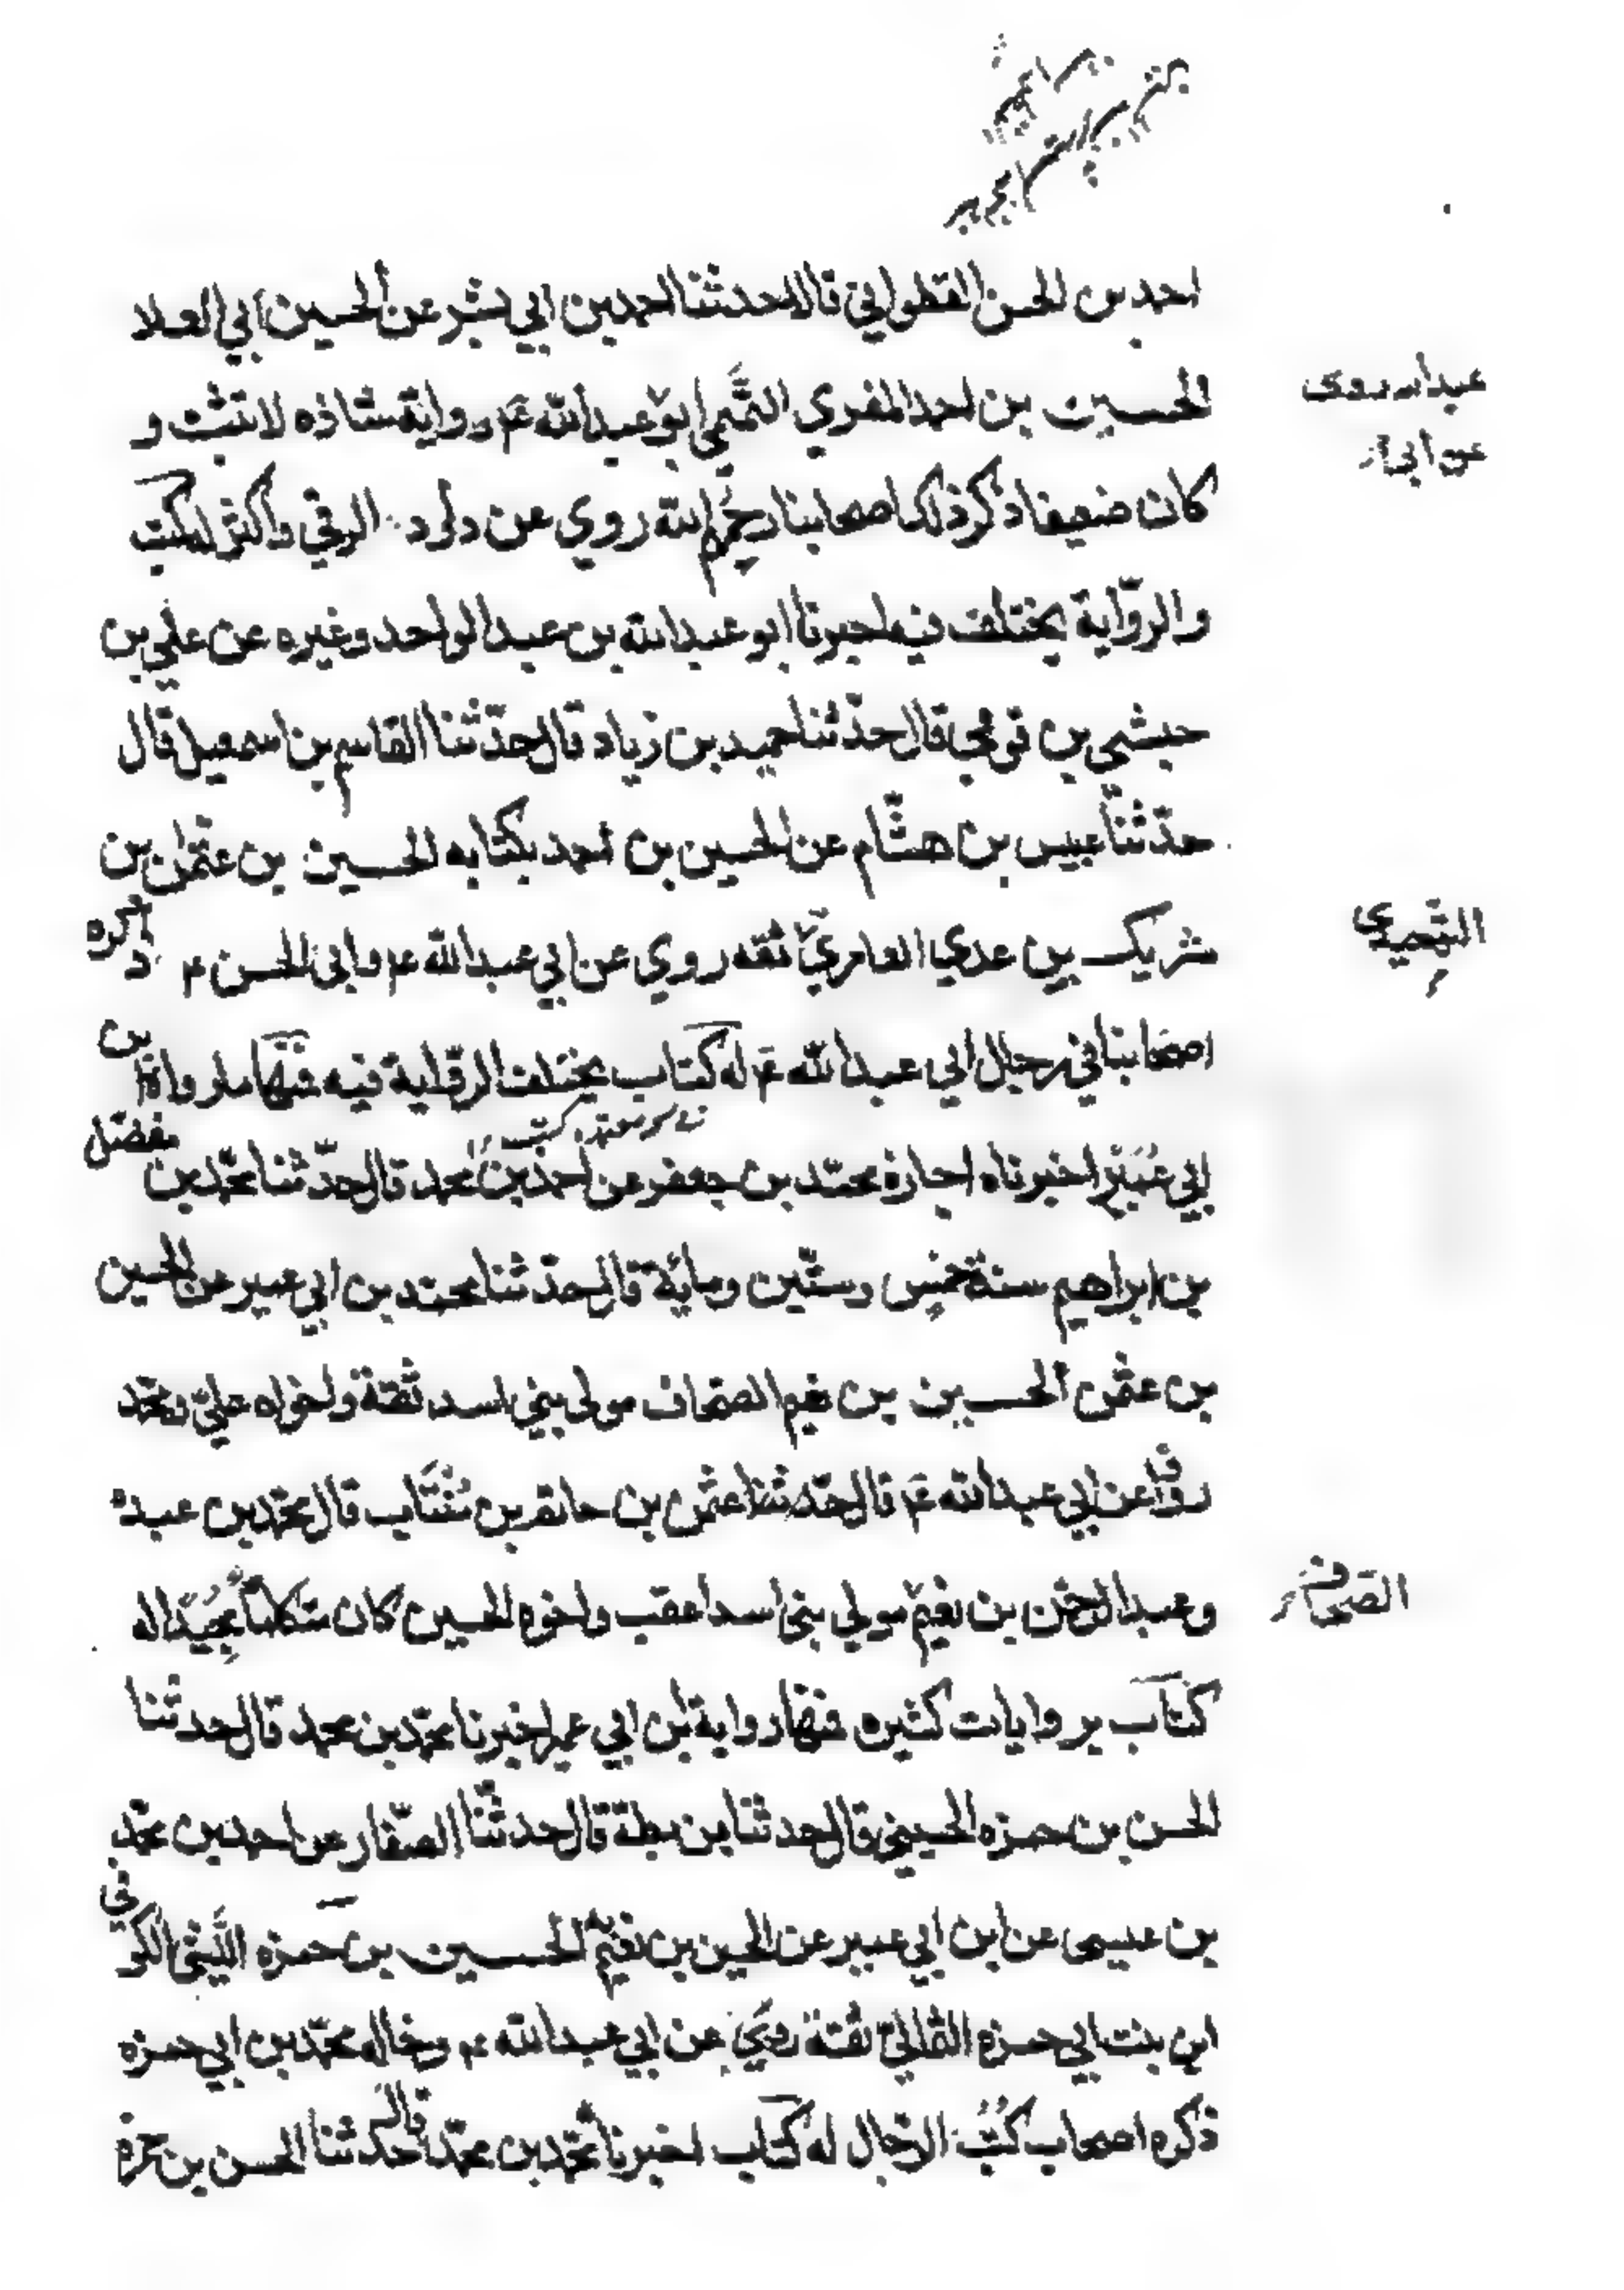 احمد بن الحسن القطواني قال حدثنا احمد بن ابي بشر عن الحسين ابي العلا
الحسين بن احمد المنقري التميمي ابو عبد الله عن ابي عبد الله ع م رواية شاذه لا تثبت و
كان ضعيفا ذكر ذلك اصحابنا رحمهم الله روي عن داود الرقي واكثر له كتب
والرواية يختلف فيه اخبرنا ابو عبد الله بن عبد الواحد وغيره عن علي بن
حبشي بن قوني قال حدثنا حميد بن زياد قال حدثنا القاسم بن اسمعيل قال
حدثنا عبيس بن هشام عن الحسين بن احمد بكتابه الحسين بن عثمان بن
شريك بن عدي العامري ثقه روي عن ابي عبد الله ع م وابي الحسن م ذكره
اصحابنا في رجال ابي عبد الله ع م له كتاب يختلف الرواية فيه فمنها ما رواه ابن
ابي عمير اخبرناه اجازه محمد بن جعفر عن احمد بن محمد قال حدثنا محمد بن مفضل
بن ابراهيم سنة خمس وستين ومائة قال حدثنا محمد بن ابي عمير عن الحسين
بن عثمن الحسين بن نعيم الصحاف مولى بني اسد ثقة واخواه علي ومحمد
رووا عن ابي عبد الله ع م قال حدثنا عثمن بن حاتم بن منتاب قال محمد بن عبده
وعبد الرحمن بن نعيم مولي بني اسد اعقب واخوه الحسين كان متكلما مجيدا له
كتاب بروايات كثيره فمنها رواية ابن ابي عمير اخبرنا محمد بن محمد قال حدثنا
الحسن بن حمزه الحسيني قال حدثنا بن بطة قال حدثنا الصفار عن احمد بن محمد
بن عيسى عن ابن ابي عمير عن الحسين بن نعيم الحسين بن حمزه الليثي الكوفي
ابن بنت ابي حمزه الثمالي ثقة روي عن ابي عبد الله م وخاله محمد بن ابي حمزه
ذكره اصحاب كتب الرجال له كتاب اخبرنا محمد بن محمد قال حدثنا الحسن بن حمزة
الصحاف